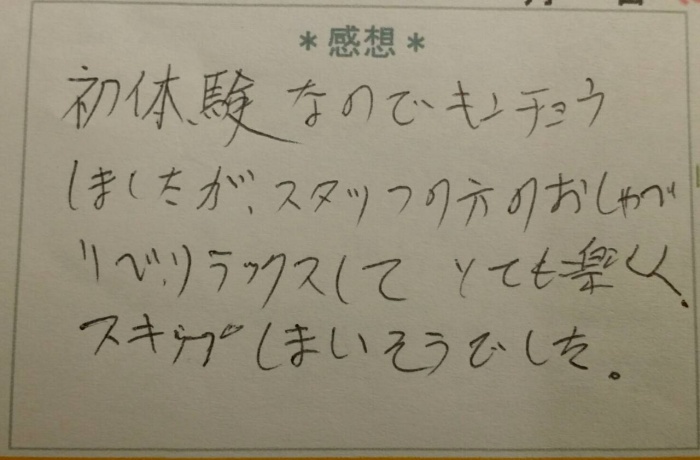 ＊感想＊
初体験なのでキンチョウ
しましたが、スタッフの方のおしゃべ
りで、リラックスして とても楽しく、
スキップしまいそうでした。